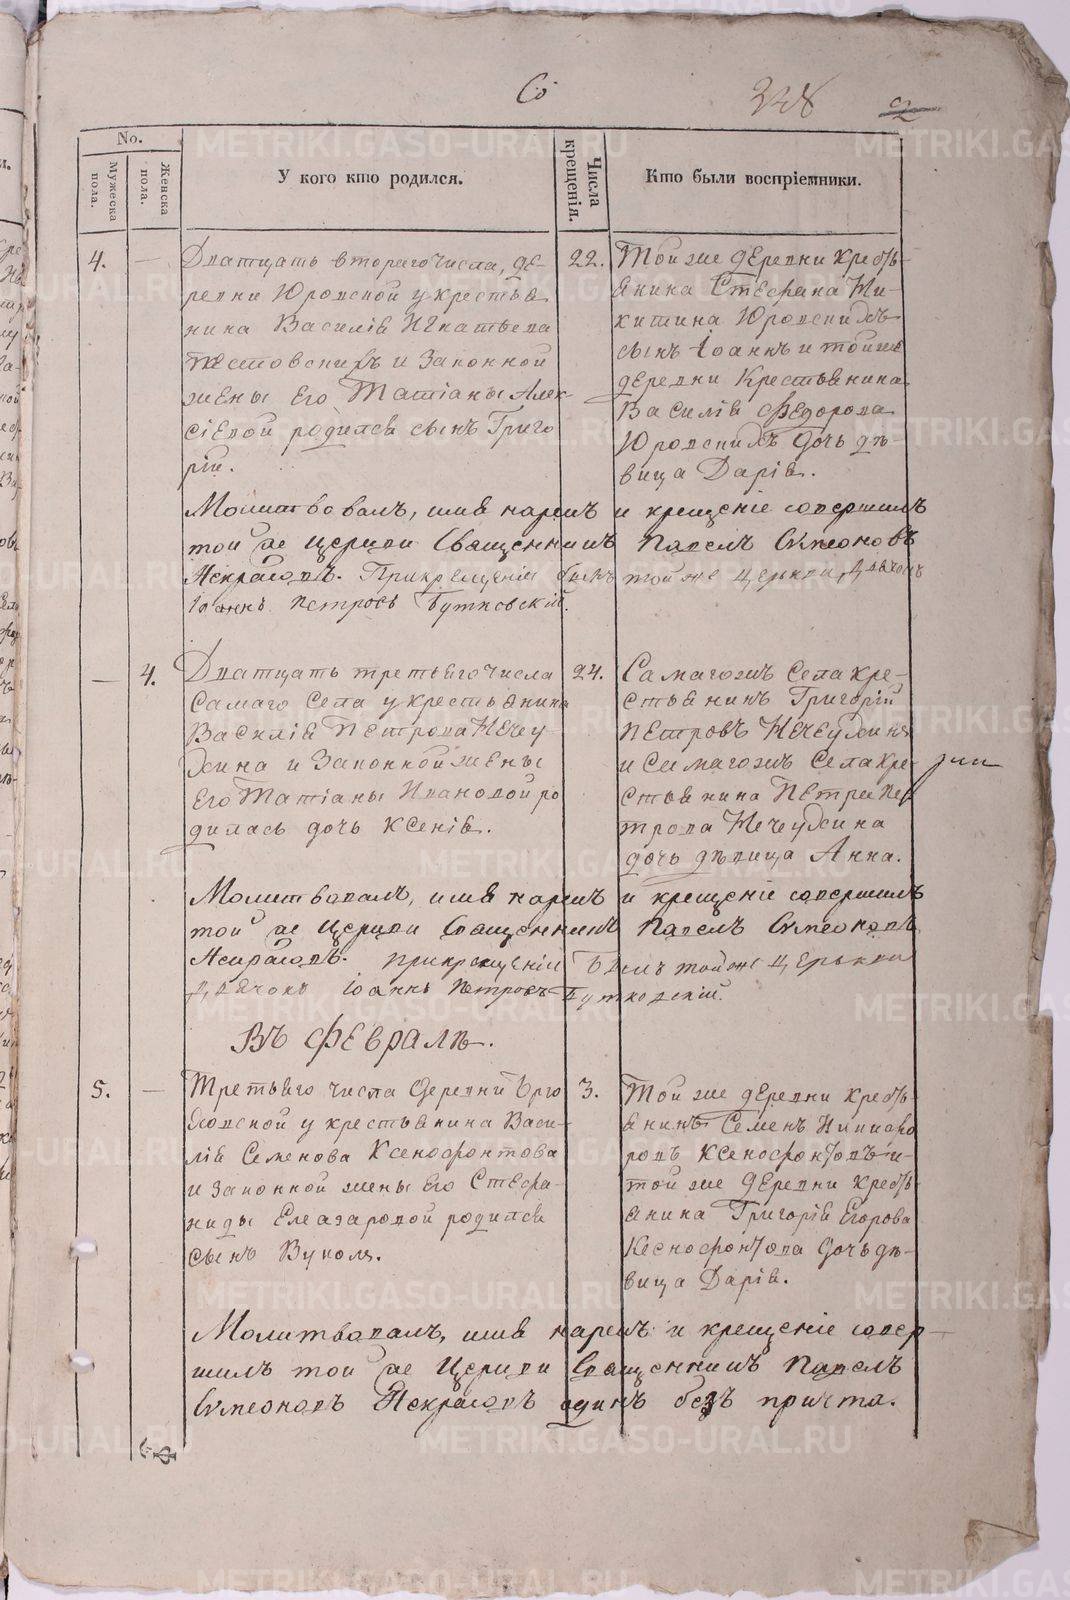 238
No.
Мужеска пола.
Женска пола.
У кого кто родился.
Числа крещенія.
Кто были воспріемники.
4.
—
Дватцать втораго числа, де-
ревни Юровской у крестья
нина Василія Игнатьева
и законной
жены его Татіаны Алек-
сіевой родился сынъ Григо
рій.
22.
Той же деревни кресть-
янина Стефана Ни-
китина Юровскихъ
сынъ Іоаннъ и той же
деревни крестьянина
Василія Федорова
Юровскихъ дочь дѣ-
вица Дарія.
Молитвовалъ, имя нарекъ и крещеніе совершилъ
той же церкви Священникъ Павелъ Симеоновъ
Некрасовъ. При крещеніи былъ той же церкви дьячокъ
Іоаннъ Петровъ Бутковскій.
—
4.
Дватцать третьяго числа
самаго села у крестьянина
Василія Петрова Нечеу
хина и законной жены
его Татіаны Ивановой ро
дилась дочь Ксенія.
24.
Самагожъ села кре-
стьянинъ Григорій
Петровъ Нечеухинъ
и самагожъ села кре-
стьянина Петра Пе
трова Нечеухина
дочь дѣвица Анна.
Молитвовалъ, имя нарекъ и крещеніе совершилъ
той же церкви Священникъ Павелъ Симеоновъ
Некрасовъ. При крещеніи былъ той же церкви
дьячокъ Іоаннъ Петровъ Бутковскій.
Въ Февралѣ.
5.
—
Третьяго числа деревни
у крестьянина Васи-
лія Семенова Ксенофонтова
и законной жены его Стефа-
ниды Елеазаровой родился
сынъ Вуколъ.
3.
Той же деревни кресть-
янинъ Семенъ Никифо
ровъ Ксенофонтовъ и
той же деревни кресть
янина Григорія Егорова
Ксенофонтова дочь дѣ-
вица Дарія.
Молитвовалъ, имя нарекъ и крещеніе совер-
шилъ той же церкви Священникъ Павелъ
Симеоновъ Некрасовъ одинъ безъ причта.
METRIKI.GASO-URAL.RU